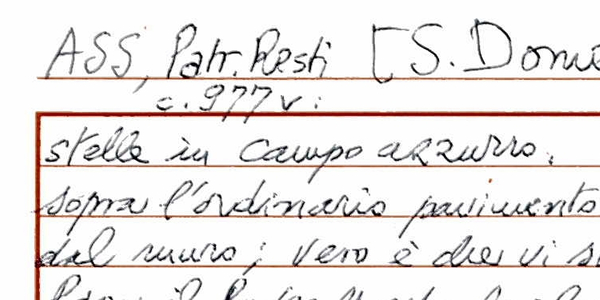 ASS, Patr. Resti [S. Dome
c. 977 v:
stelle in campo azzurro.
sopra l'ordinario pavimento
dal muro; vero è che vi s